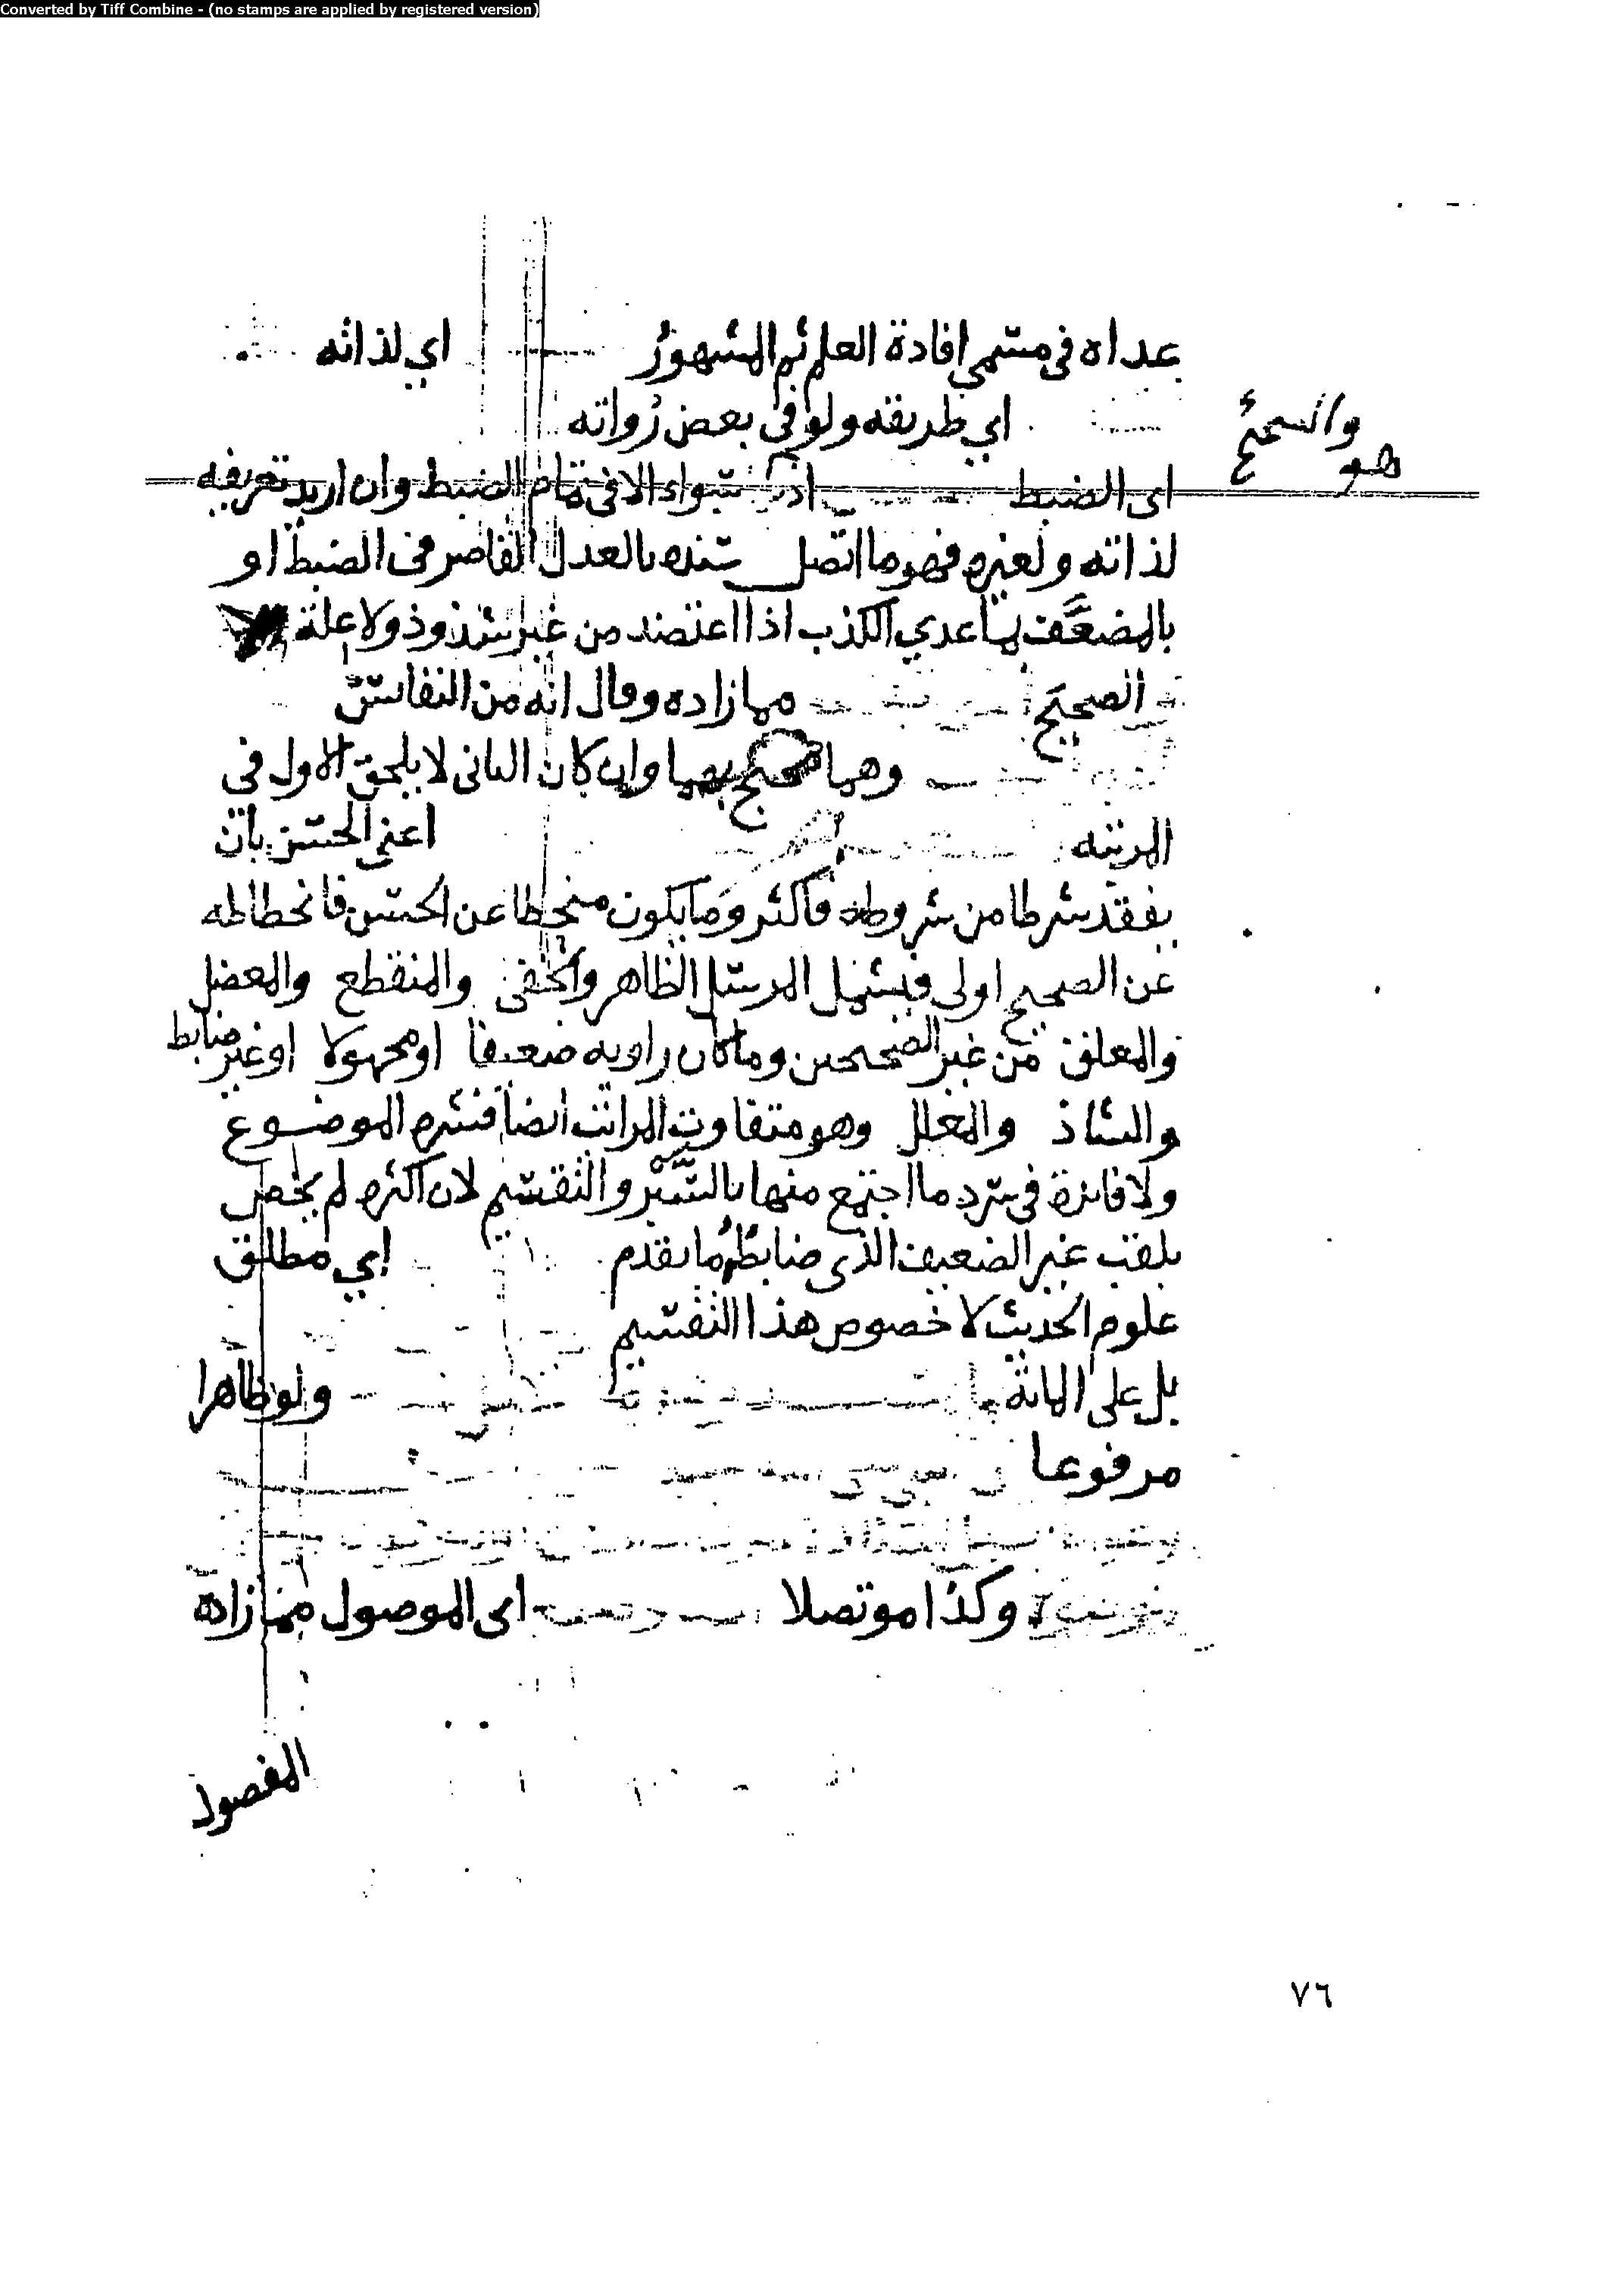 Converted by Tiff Combine - (no stamps are applied by registered version)
عداه في مسمى افادة العلم ثم المشهور اي لذاته
اي طريقه ولو في بعض رواته
هو
اى الضبط سواء الا في تمام الضبط وان اريد تعريفه
لذاته ولغيره فهو ما اتصل سنده بالعدل القاصر في الضبط او
بالمضعف بما عدي الكذب اذا اعتضد من غير شذوذ ولا علة
الصحيح مما زاده وقال انه من النفائس
وهما محتج بهما وان كان الثاني لا يلحق الاول في
المرتبه اعني الحسن بان
يفقد شرطا من شروطه فاكثر وما يكون منحطا عن الحسن فانحطاطه
عن الصحيح اولى فيشمل المرسل الظاهر والخفي والمنقطع والمعضل
والمعلق من غير الصحيحين وما كان راويه ضعيفا او مجهولا او غير ضابط
والشاذ والمعلل وهو متفاوت المراتب ايضا فشره الموضوع
ولا فائدة في سرد ما اجتمع منها بالسبر والتقسيم لان اكثره لم يخص
بلقب غير الضعيف الذى ضابطه ما تقدم اي مطلق
علوم الحديث لا خصوص هذا التقسيم
بل على المائة ولو ظاهرا
مرفوعا
وكذا موتصلا اى الموصول مما زاده
المقصود
٧٦